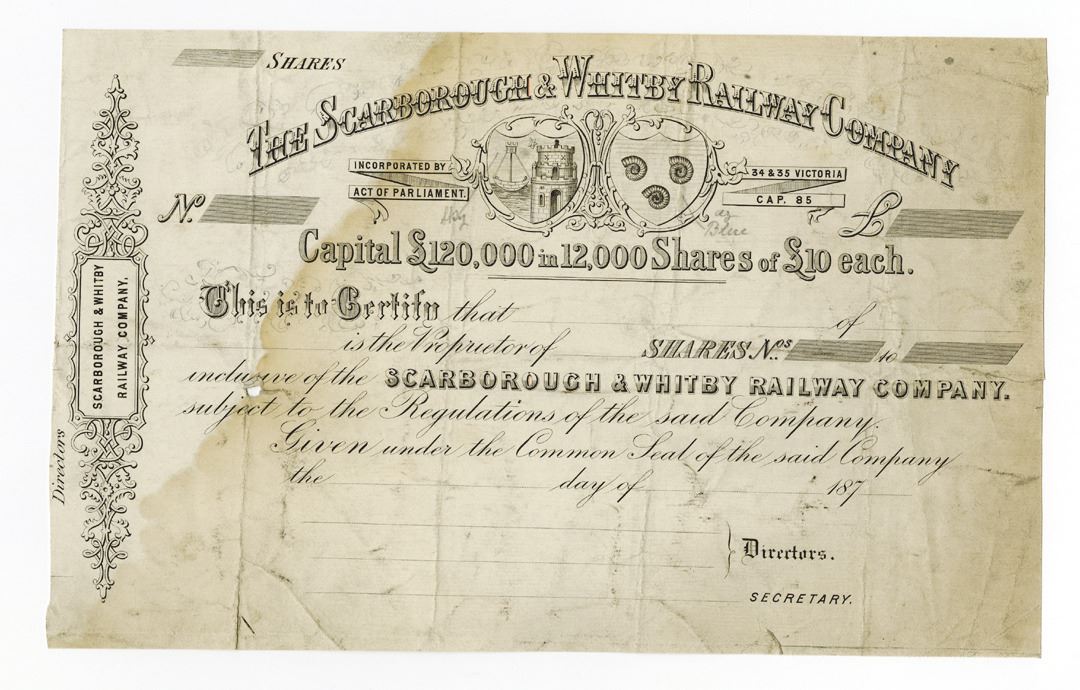 SHARES
THE SCARBOROUGH & WHITBY RAILWAY COMPANY
INCORPORATED BY
ACT OF PARLIAMENT.
34 & 35 VICTORIA
CAP. 85
No. £
Blue
Capital £120,000 in 12,000 Shares of £10 each.
This is to Certify that of
is the Proprietor of SHARES Nos. to
inclusive of the SCARBOROUGH & WHITBY RAILWAY COMPANY.
subject to the Regulations of the said Company.
Given under the Common Seal of the said Company
the day of 187
Directors.
SECRETARY.
SCARBOROUGH & WHITBY
RAILWAY COMPANY.
Directors